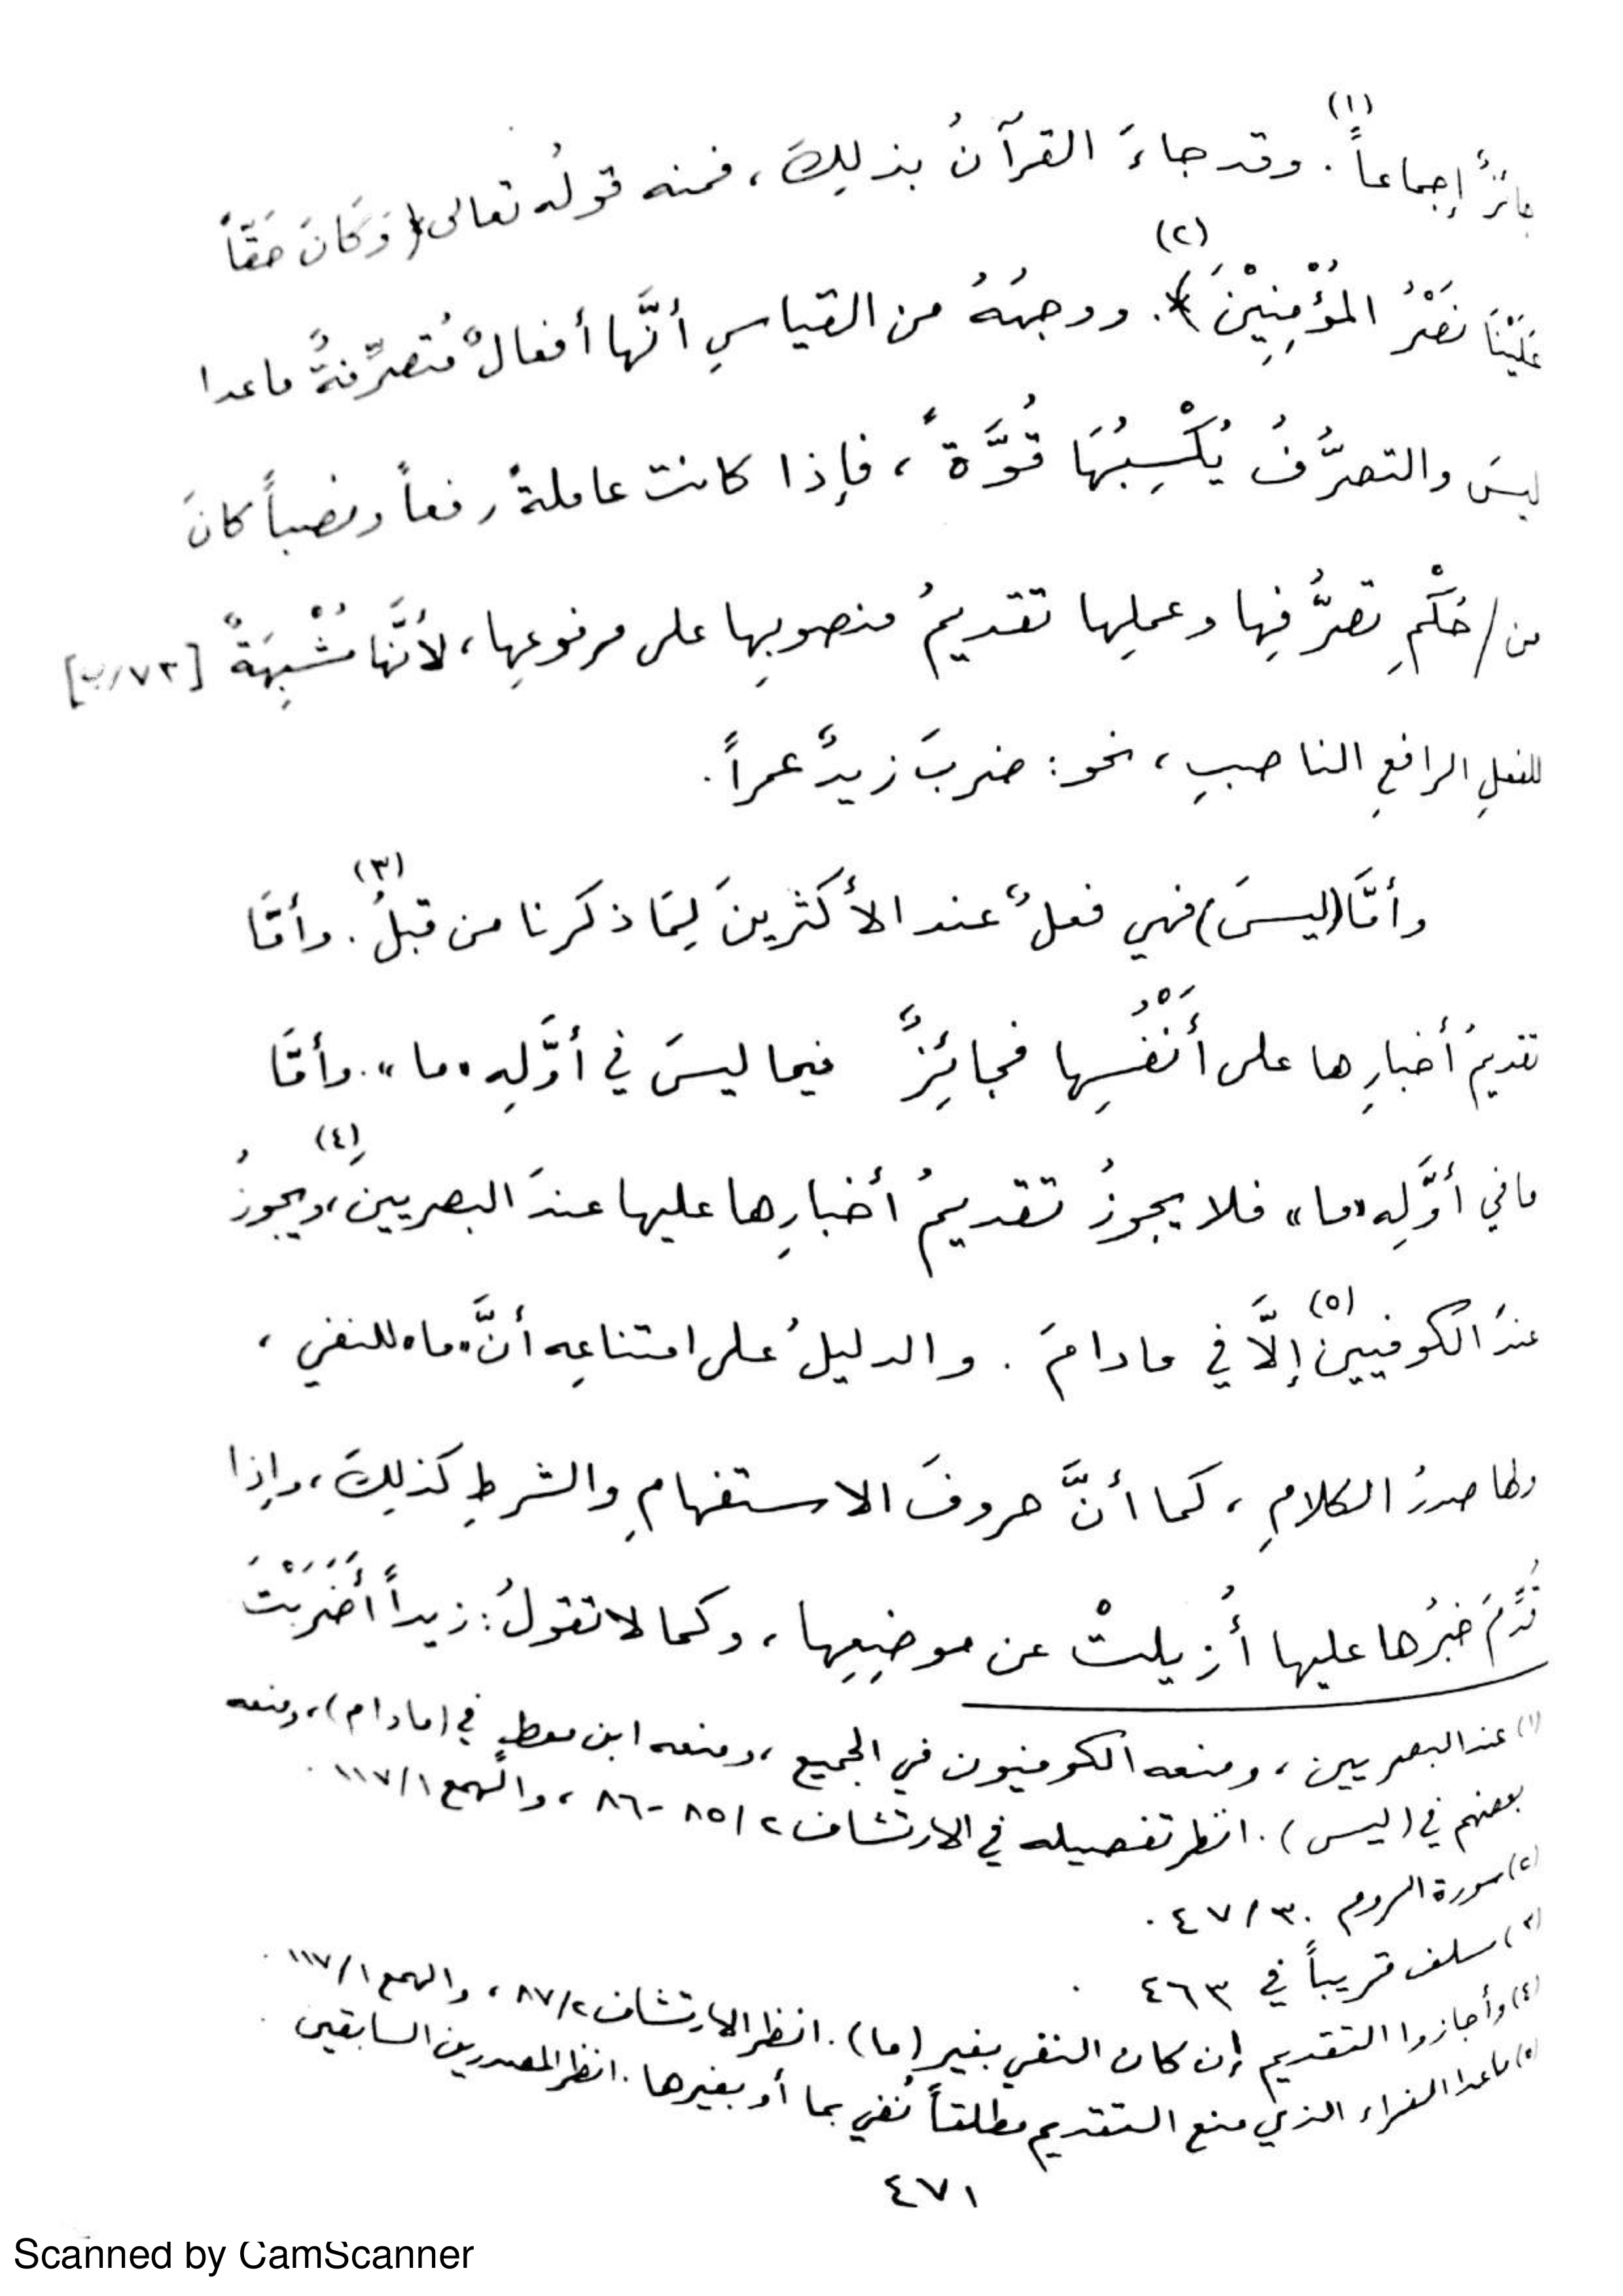 جائزٌ إجماعاً(١). وقد جاءَ القرآنُ بذلِكَ، فمنه قولُه تعالى ﴿وَكَانَ حَقّاً
عَلَيْنَا نَصْرُ المُؤْمِنِيْنَ﴾(٢). ووجهُهُ من القياسِ أنَّها أفعالٌ مُتصرِّفةٌ ماعدا
ليسَ والتصرُّفُ يُكْسِبُهَا قُوَّةً، فإذا كانت عاملةً رفعاً ونصباً كانَ
من / حُكْمِ تصرُّفِها وعملِها تقديمُ منصوبِها على مرفوعِها، لأنَّها مُشْبِهَةٌ [٧٢/ب]
للفعلِ الرافعِ الناصبِ، نحو: ضربَ زيدٌ عمراً.
وأمَّا (ليسَ) فهي فعلٌ عند الأكثرينَ لِمَا ذكرنا من قبلُ(٣). وأمَّا
تقديمُ أخبارِها على أَنْفُسِها فجائِزٌ فيما ليسَ في أوَّلِه «ما». وأمَّا
مافي أوَّلِه «ما» فلا يجوزُ تقديمُ أخبارِها عليها عندَ البصريينَ(٤)، ويجوزُ
عندَ الكوفيينَ(٥) إلَّا في مادامَ. والدليلُ على امتناعِه أنَّ «ما» للنفي،
ولها صدرُ الكلامِ، كما أنَّ حروفَ الاستفهامِ والشرطِ كذلِكَ، وإذا
قُدِّمَ خبرُها عليها أُزيلتْ عن موضِعِها، وكما لا تقولُ: زيداً أَضَرَبْتَ
(١) عند البصريين، ومنعه الكوفيون في الجميع، ومنعه ابن معطٍ في (مادام)، ومنعه
بعضهم في (ليس). انظر تفصيله في الارتشاف ٢/ ٨٥-٨٦، والهمع ١/ ١١٧.
(٢) سورة الروم ٣٠/ ٤٧.
(٣) سلف قريباً في ٤٦٣.
(٤) وأجازوا التقديم إن كان النفي بغير (ما). انظر الارتشاف ٢/ ٨٧، والهمع ١/ ١١٧.
(٥) ماعدا الفراء الذي منع التقديم مطلقاً نُفي بما أو بغيرها. انظر المصدرين السابقين.
٤٧١
Scanned by CamScanner